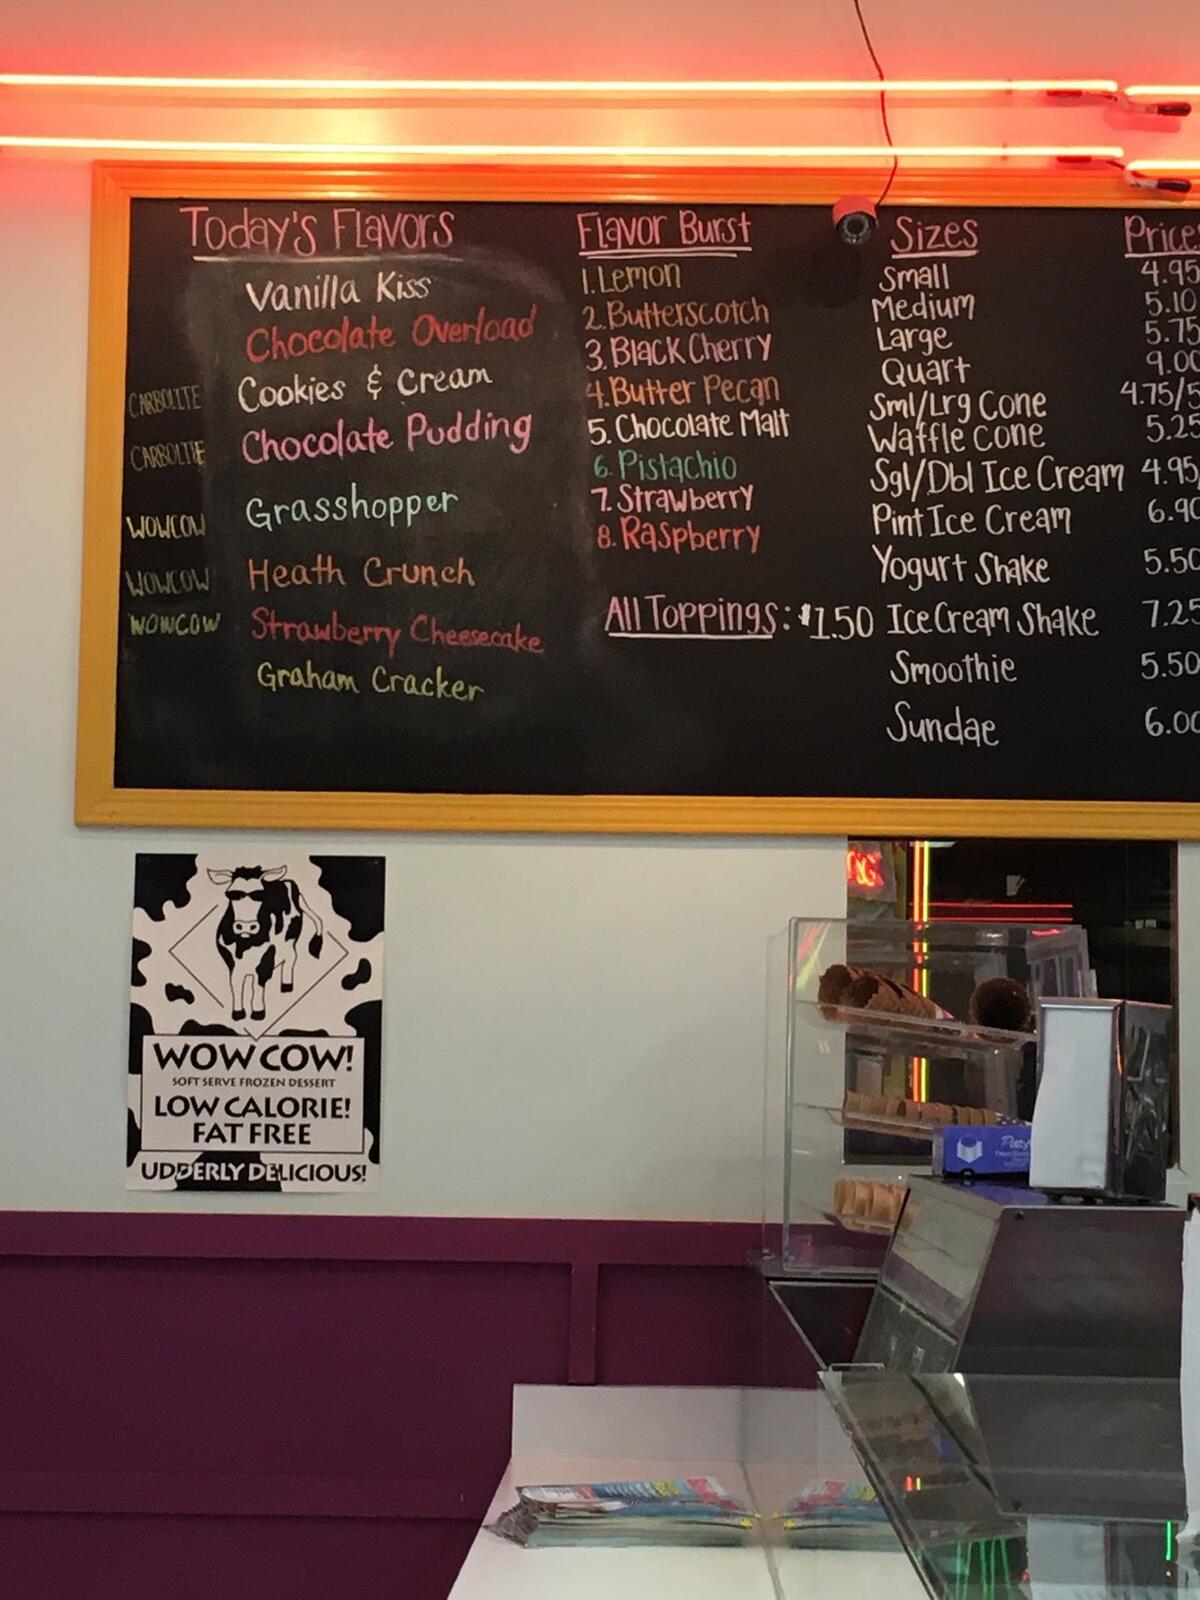 Today's Flavors
Vanilla Kiss
Chocolate Overload
CARBOLITE Cookies & Cream
CARBOLITE Chocolate Pudding
WOWCOW Grasshopper
WOWCOW Heath Crunch
WOWCOW Strawberry Cheesecake
Graham Cracker
Flavor Burst
1. Lemon
2. Butterscotch
3. Black Cherry
4. Butter Pecan
5. Chocolate Malt
6. Pistachio
7. Strawberry
8. Raspberry
All Toppings: $1.50
Sizes Prices
Small 4.95
Medium 5.10
Large 5.75
Quart 9.00
Sml/Lrg Cone 4.75/5
Waffle Cone 5.25
Sgl/Dbl Ice Cream 4.95/
Pint Ice Cream 6.90
Yogurt Shake 5.50
Ice Cream Shake 7.25
Smoothie 5.50
Sundae 6.00
WOW COW!
SOFT SERVE FROZEN DESSERT
LOW CALORIE!
FAT FREE
UDDERLY DELICIOUS!